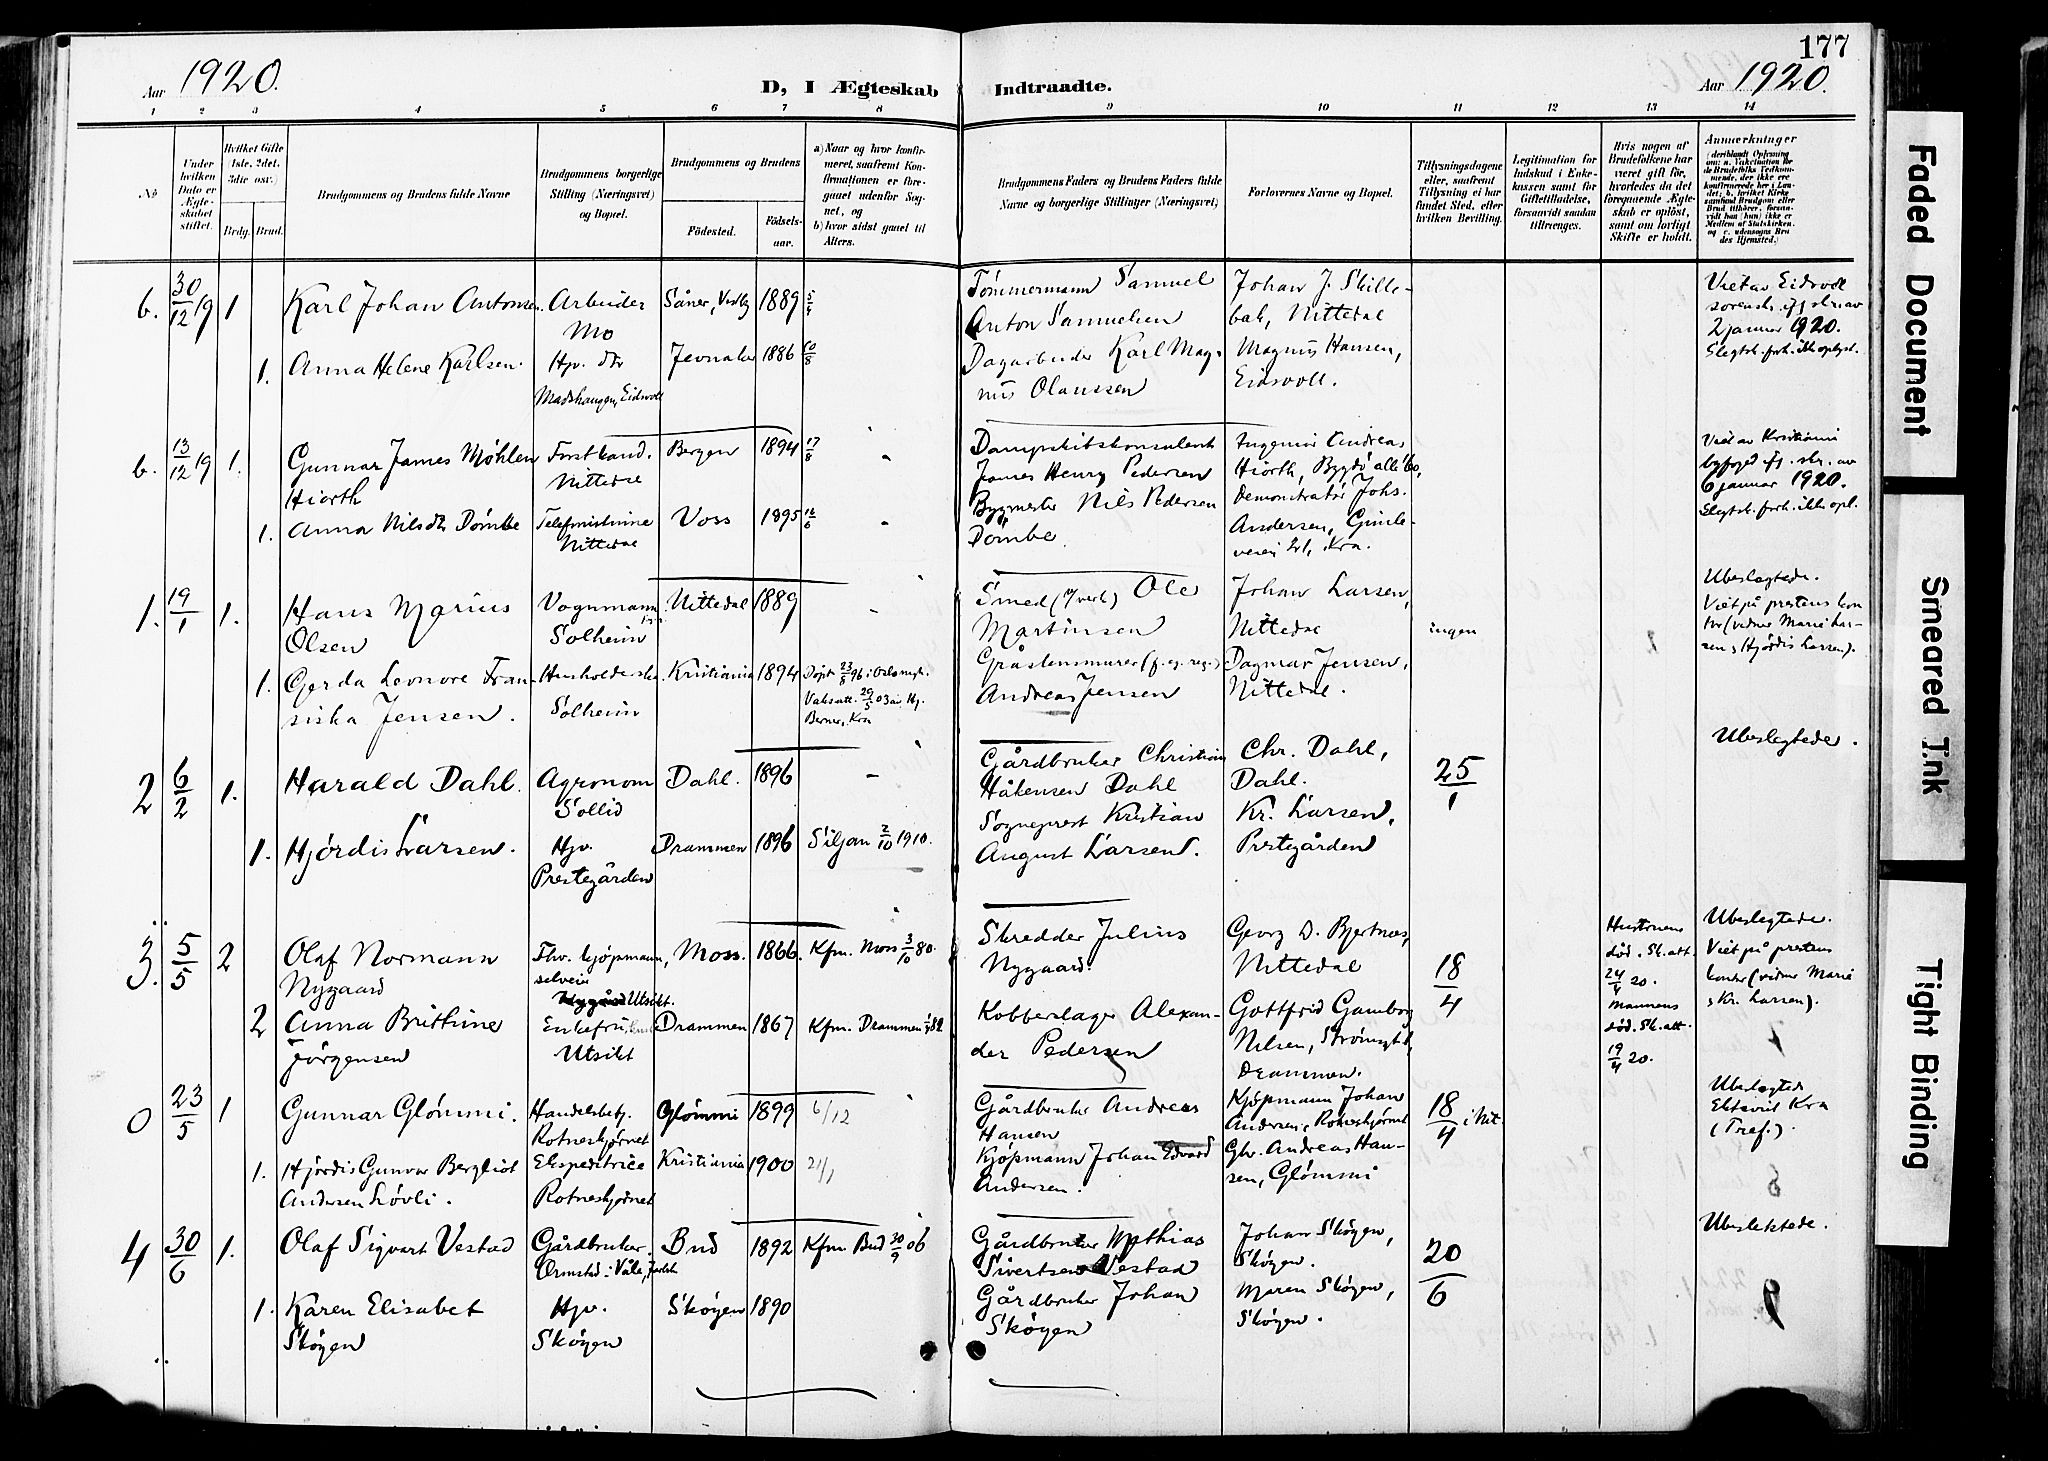 177
Aar 1920.
D, I Ægteskab Indtraadte.
Aar 1920.
1 2 3 4 5 6 7 8 9 10 11 12 13 14
No
Under
hvilken
Dato er
Ægte-
skabet
stiftet.
Hvilket Gifte
(1ste, 2det,
3die osv.)
Brdg. Brud.
Brudgommens og Brudens fulde Navne
Brudgommens borgerlige
Stilling (Næringsvei)
og Bopæl.
Brudgommens og Brudens
Födested.
Födsels-
aar.
a) Naar og hvor konfir-
meret, saafremt Kon-
firmationen er fore-
gaaet udenfor Sog-
net, og
b) hvor sidst gaaet til
Alters.
Brudgommens Faders og Brudens Faders fulde
Navne og borgerlige Stillinger (Næringsvei)
Forlovernes Navne og Bopæl.
Tillysningsdagene
eller, saafremt
Tillysning ei har
fundet Sted, efter
hvilken Bevilling.
Legitimation for
Indskud i Enke-
kassen samt for
Giftetilladelse,
forsaavidt saadan
tiltrænges.
Hvis nogen af
Brudefolkene har
været gift för,
hvorledes da det
foregaaende Ægte-
skab er oplöst,
samt om lovligt
Skifte er holdt.
Anmærkninger
b. 30/12 19 1 Karl Johan Antonsen. Arbeider Såner, Vestby 1889 5/4 Tømmermann Samuel Johan J. Skille- Viet av Eidsvoll
Mo Anton Samuelsen bak, Nittedal 2 januar 1920.
1. Anna Helene Karlsen. Hpv. dtr Jevnaker 1886 10/8 Dagarbeider Karl Mag- Magnus Hansen, Slegtsk. forh. ikke oplyst.
Madshaugen, Eidsvoll nus Olaussen Eidsvoll.
b. 13/12 19 1. Gunnar James Møhlen Forstkand. Bergen 1894 17/8 Dampskibskonsulent Ingeniør Andreas Viet av Kristiania
Hiorth Nittedal James Henry Pedersen Hiorth, Bygdø allé 60, byfoged efg. skr. av
Bygmester Nils Pedersen Demonstratør Johs. 6 januar 1920.
1. Anna Nilsdtr Dømbe Telefonistinne Voss 1895 Dømbe Andersen, Gimle- Slegtsk. forh. ikke opl.
Nittedal veien 21, Kra.
1. 19/1 1. Hans Marius Vognmann Nittedal 1889 Smed (v/verk) Ole Johan Larsen, Ubeslegtede.
Olsen Solheim Martinsen Nittedal ingen Viet på prestens kon
tor (vidner Marie Lar-
1. Gerda Leonore Fran- Husholderske Kristiania 1894 Døpt 23/8 96 i Oslo mgk. Gråstensmurer Dagmar Jensen, sen & Hjørdis Larsen).
siska Jensen. Solheim Vaksatt. 29/5 03 av Hj. Andreas Jensen Nittedal.
Berner, Kra
2 6/2 1. Harald Dahl. Agronom Dahl. 1896 Gårdbruker Christian Chr. Dahl, 25/1 Ubeslegtede.
Sollid Håkensen Dahl Dahl.
1. Hjørdis Larsen. Hpv. Drammen 1896 Siljan 2/10 1910. Sogneprest Kristian Kr. Larsen,
Prestegården August Larsen. Prestegården
3. 5/5 2 Olaf Normann Fhv. kjøpmann, Moss. 1866. Kfm. Moss 3/10 80. Skredder Julius Georg D. Bjertnæs, 18/4 Hustruens Ubeslegtede.
Nygaard selveier Nygaard. Nittedal død. Sk. att. Viet på prestens
Utsikt. 24/4 20. kontor (vidner Marie
2 Anna Brithine Enkefru Drammen 1867 Kfm. Drammen Kobberslager Alexan- Gottfrid Gamborg Mannens & Kr. Larsen).
Jørgensen Utsikt der Pedersen Nilsen, Strømsgt., død. Sk. att.
Drammen. 19/4 20.
0 23/5 1 Gunnar Glømmi. Handelsbetj. Glømmi 1899 6/12 Gårdbruker Andreas Kjøpmann Johan 18/4 i Nit. Ubeslegtede
Rotneskjørnet Hansen Andersen, Rotneskjørnet Ektaviet Kra
1. Hjørdis Gunvor Bergliot Ekspeditrice Kristiania 1900 21/1 Kjøpmann Johan Edvard Gbr. Andreas Han- (Tref.).
Andersen Løvli. Rotneskjørnet Andersen. sen, Glømmi
4 30/6 1. Olaf Sigvart Vestad Gårdbruker. Bud 1892 Kfm. Bud 30/9 06 Gårdbruker Mathias Johan Skøyen, 20/6 Ubeslektede.
Ormstad i Våle, Jarlsb. Sivertsen Vestad Skøyen.
1. Karen Elisabet Hpv. Skøyen 1890 Gårdbruker Johan Maren Skøyen,
Skøyen Skøyen Skøyen Skøyen.
Faded Document
Smeared Ink
Tight Binding